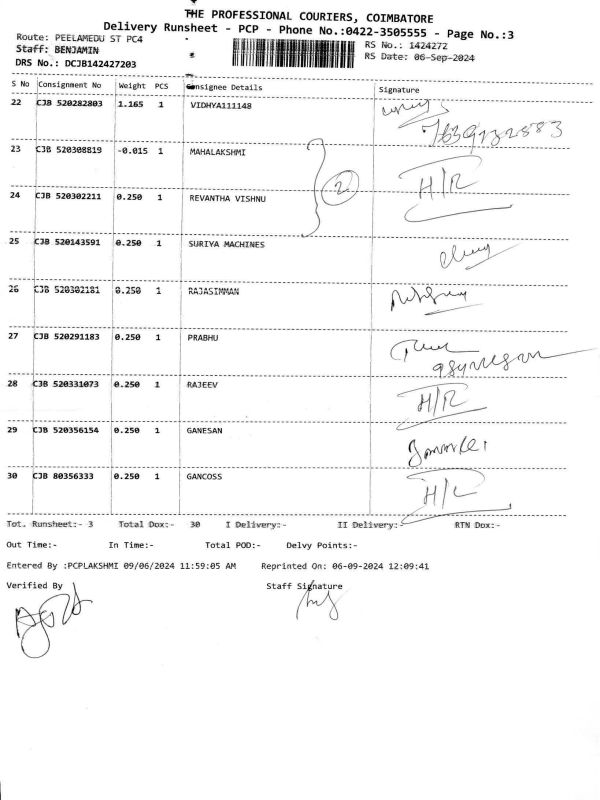 THE PROFESSIONAL COURIERS, COIMBATORE
Delivery Runsheet - PCP - Phone No.:0422-3505555 - Page No.:3
Route: PEELAMEDU ST PC4
RS No.: 1424272
Staff: BENJAMIN
RS Date: 06-Sep-2024
DRS No.: DCJB142427203
S No Consignment No Weight PCS Consignee Details Signature
22 CJB 520282803 1.165 1 VIDHYA111148
23 CJB 520308819 -0.015 1 MAHALAKSHMI
2 H/R
24 CJB 520302211 0.250 1 REVANTHA VISHNU
25 CJB 520143591 0.250 1 SURIYA MACHINES
26 CJB 520302181 0.250 1 RAJASIMMAN
27 CJB 520291183 0.250 1 PRABHU
28 CJB 520331073 0.250 1 RAJEEV H/R
29 CJB 520356154 0.250 1 GANESAN
30 CJB 80356333 0.250 1 GANCOSS
Tot. Runsheet:- 3 Total Dox:- 30 I Delivery:- II Delivery:- RTN Dox:-
Out Time:- In Time:- Total POD:- Delvy Points:-
Entered By :PCPLAKSHMI 09/06/2024 11:59:05 AM Reprinted On: 06-09-2024 12:09:41
Verified By Staff Signature